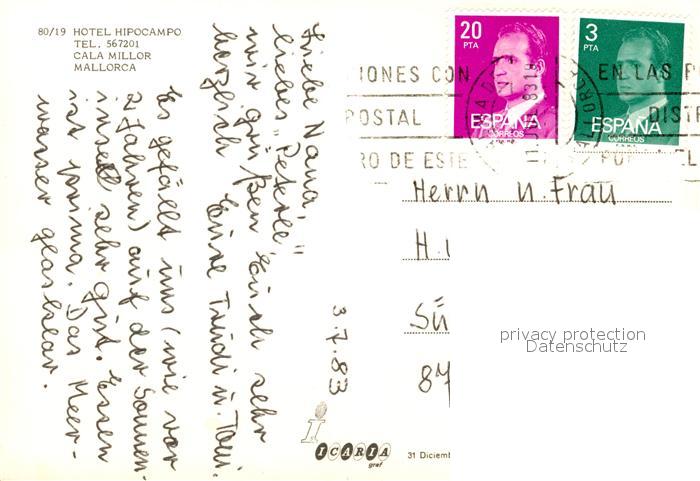 80/19 HOTEL HIPOCAMPO
TEL. 567201
CALA MILLOR
MALLORCA
Liebe Nana,
liebes "Peterle"
wir grüßen Euch sehr
herzlich Eure Trudi u. Toni.
Es gefällt uns (wie vor
2 Jahren) auf der Sonnen-
insel sehr gut. Essen
ist prima. Das Meer-
wasser glasklar.
3.7.83
20
PTA
ESPAÑA
CORREOS
3
PTA
ESPAÑA
CORREOS
IONES CON
EN LAS
POSTAL
DIST
RO DE ESTE
Herrn u. Frau
H.
Sü
87
privacy protection
Datenschutz
i
ICARIA
graf
31 Diciemb